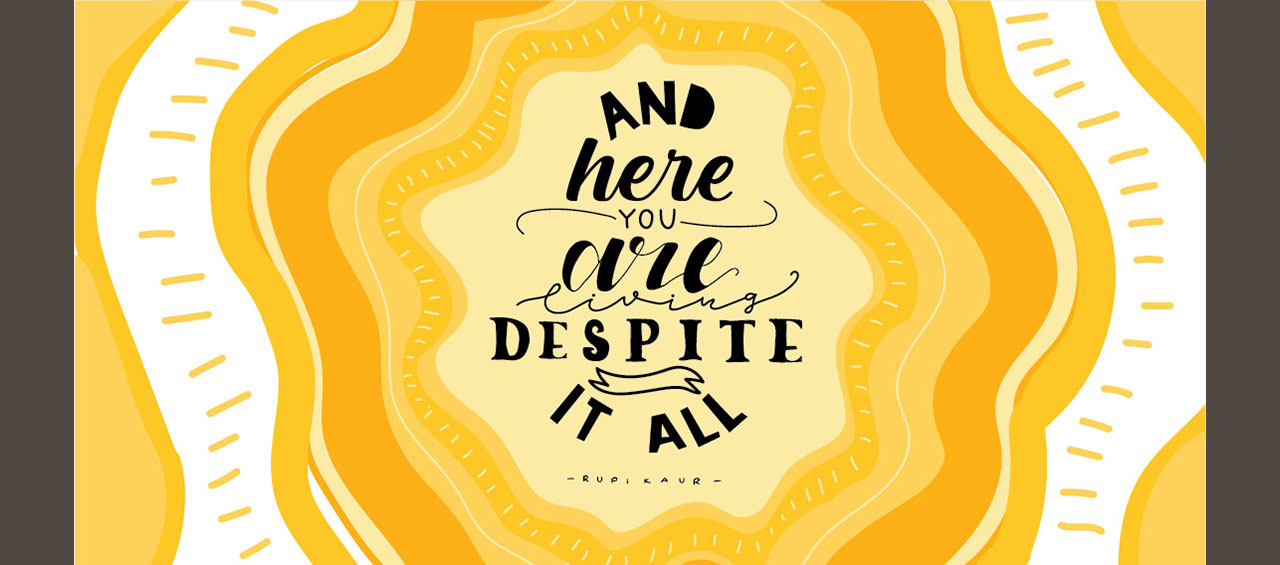 AND
here
YOU
are
living
DESPITE
IT ALL
-RUPI KAUR-